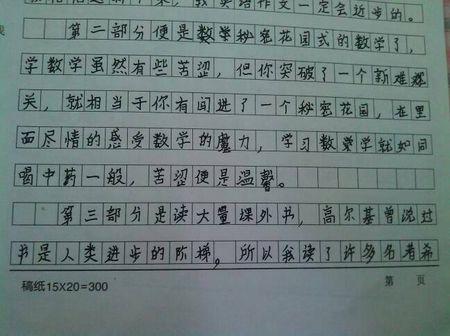 教英语作文一定会近步的。
第二部分便是数学秘密花园式的数学了,
学数学虽然有些苦涩,但你突破了一个新难
关,就相当于你有间进了一个秘密花园,在里
面尽情的感受数学的魔力,学习数学就如同
喝中药一般,苦涩便是温馨。
第三部分是读大量课外书,高尔基曾说过
书是人类进步的阶梯,所以我读了许多名著希
稿纸15X20=300
第 页